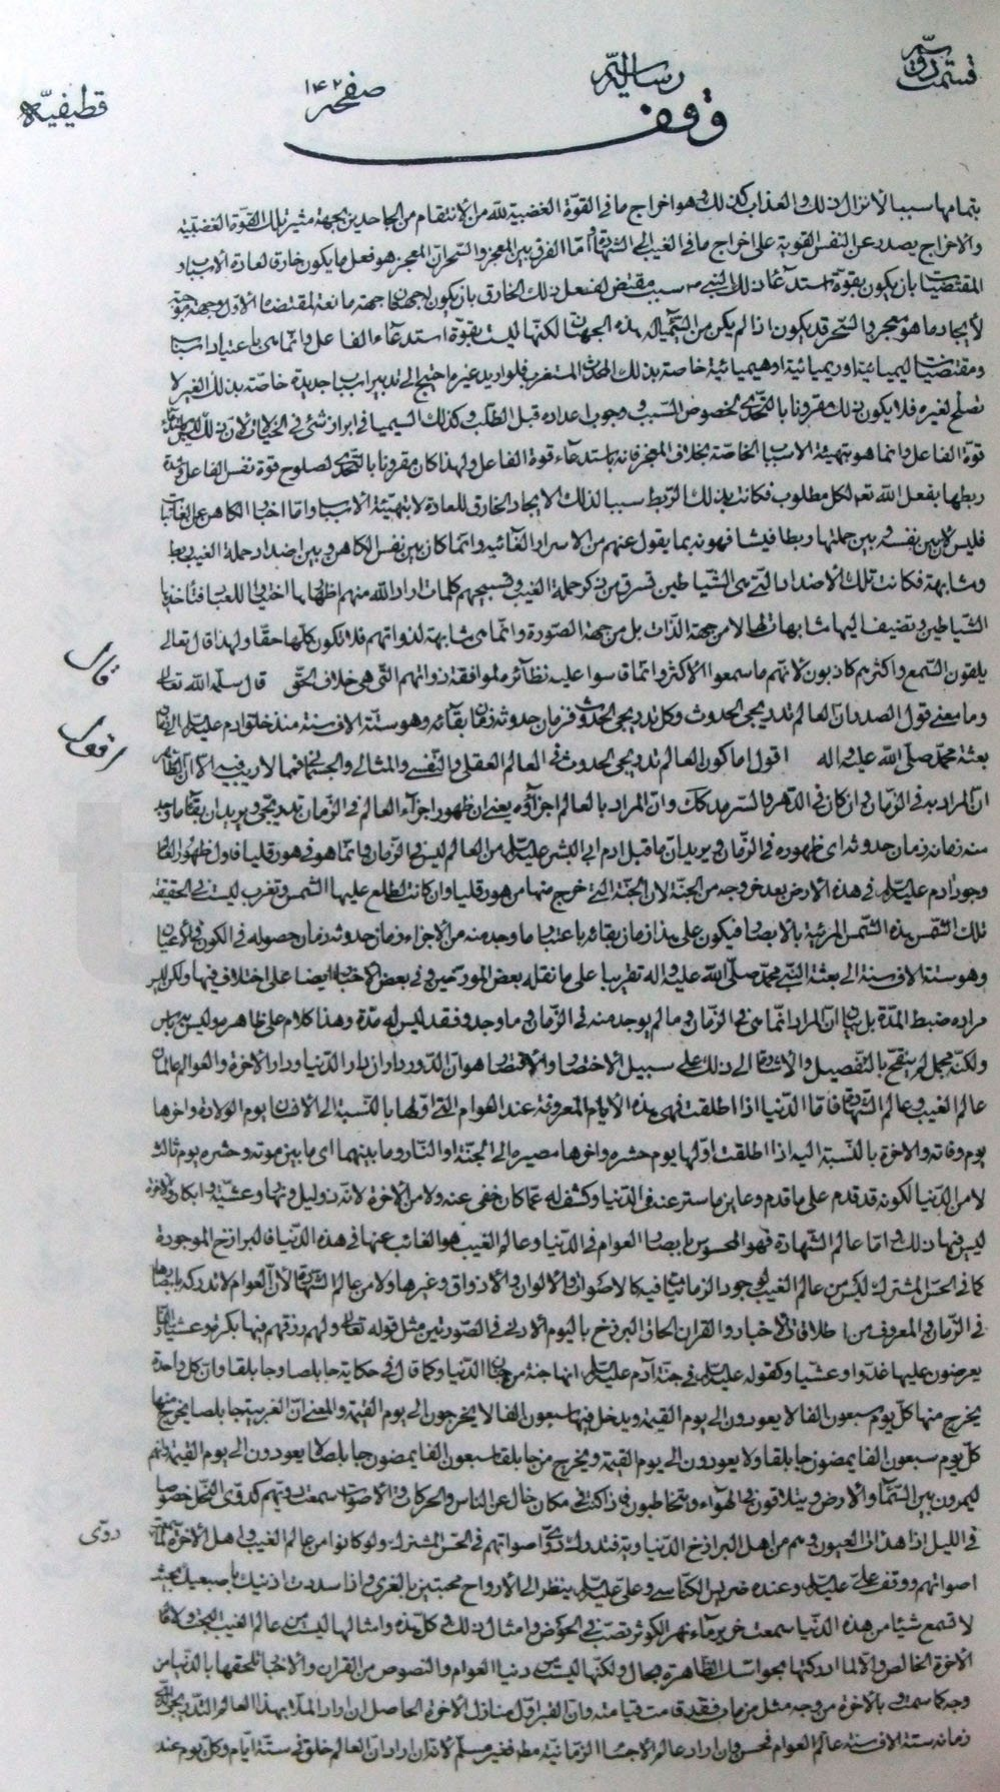 قسمت دوّم رسالة صفحه ١٤٢ قطيفيّه
وقف
بتمامها سببا لأنزال ذلك والعذاب كذلك وهو اخراج ما فى القوّة الغضبية لله من الانتقام من الجاحدين بجهة مثير تلك القوّة الغضبيّة
والاخراج يصدر عن النفس القوية على اخراج ما فى الغيب الى الشهادة وامّا الفرق بين المعجز والسّحر ان المعجز هو فعل ما يكون خارق لعادة الاسباب
المقتضيات بان يكون بقوة استدعاء ذلك النبى سبب مقتض لفعل ذلك الخارق بان يكون جهة مانعة لمقتضاها الأوّل وجهة
لأيجاد ما هو معجز والسّحر قد يكون اذا لم يكن من السّيميا له هذه الجهات لكنّها ليست بقوّة استدعاء الفاعل وانّما هى باعتبار اسباب
ومقتضيات ليميائية او ريميائية او هيميائية خاصة بذلك الحادث المستغرب فلو اريد غيره احتيج الى تدبير اسباب جديدة خاصّة بذلك الغير لا
تصلح لغيره فلا يكون ذلك مقرونا بالتحدّى لخصوص السّبب ووجوب اعداده قبل الطّلب وكذلك السّيميا فى ابراز شئ فى الخيالات لان ذلك ليس
قوّة الفاعل وانما هو بتهيئة الاسباب الخاصّة بخلاف المعجز فانه باستدعاء قوة الفاعل ولهذا كان مقرونا بالتحدّى لصلوح قوة نفس الفاعل
ربطها بفعل الله تعالى لكل مطلوب فكانت بذلك الرّبط سببا لذلك الايجاد الخارق للعادة لا بتهيئة الاسباب وامّا اخبار الكاهن عن الغائبات
فليس لان بين نفسه وبين حملتها ربطا فيشافهونه بما يقول عنهم من الاسرار الغائبة وانّما كان بين نفس الكاهن وبين اضداد حملة الغيب ربط
ومشابهة فكانت تلك الأضداد الّتى هى الشّياطين تسترق من ذكر حملة الغيب وتسبيحهم كلمات اراد الله منهم اظهارها اختبارا للعباد فتأخذها
الشّياطين وتضيف اليها مشابهات لها لا من جهة الذّات بل من جهة الصّورة وانّما هى مشابهة لذواتهم فلا تكون كلّها حقّا ولهذا قال تعالى
يلقون السّمع واكثرهم كاذبون لانهم ما سمعوا الاكثر وانّما قاسوا عليه نظائره لموافقة ذواتهم الّتى هى خلاف الحقّ قال سلّمه الله تعالى
قال
وما معنى قول الصدر ان العالم تدريجى الحدوث وكلّ تدريجى الحدوث فزمان حدوثه زمان بقائه وهو ستّة الاف سنة منذ خلق ادم عليه السّلم الى زمان
بعثة محمّد صلّى الله عليه واله اقول اما كون العالم تدريجى الحدوث فى العالم العقلى والنّفسى والمثالى والجسمانى فمما لا ريب فيه
اقول
ان المراد به فى الزّمان وان كان فى الدّهر والسّرمد كذلك وانّ المراد بالعالم اجزاؤه يعنى ان ظهور اجزاء العالم فى الزّمان تدريجى ويريد ان بقاء ما وجد
منه زمانه زمان حدوثه اى ظهوره فى الزّمان ويريد ان ما قبل ادم ابى البشر عليه السّلم من العالم ليس فى الزّمان وانّما هو فى هورقليا فاوّل ظهور العالم
وجود ادم عليه السّلم فى هذه الأرض بعد خروجه من الجنّة لان الجنّة الّتى خرج منها من هورقليا وان كانت تطلع عليها الشّمس وتغرب ليست فى الحقيقة
تلك الشّمس هذه الشّمس المرئية بالابصار فيكون على هذا زمان بقائه باعتبار ما وجد منه من الاجزاء زمان حدوثه زمان حصوله فى الكون فى الاعيان
وهو ستة الاف سنة الى بعثة النّبى محمّد صلّى الله عليه واله تقريبا على ما نقله بعض المورخين وفى بعض الاخبار ايضا على اختلاف فيها ولكن ليس
مراده ضبط المدّة بل بيان انّ المراد انّما هى فى الزّمان وما لم يوجد منه فى الزّمان وما وجد وفقد ليس له مدّة وهذا كلام على ظاهره وليس به باس
ولكنّه مجمل لم ينقح بالتّفصيل والاشارة الى ذلك على سبيل الأختصار والاقتصار هو انّ الدّور داران دار الدّنيا ودار الاخرة والعوالم عالمان
عالم الغيب وعالم الشّهادة فامّا الدّنيا اذا اطلقت فهى هذه الايّام المعروفة عند العوام الّتى اوّلها بالنّسبة الى الانسان يوم الولادة واخرها
يوم وفاته والاخرة بالنّسبة اليه اذا اطلقت اوّلها يوم حشره واخرها مصيره الى الجنّة او النّار وما بينهما اى ما بين موته وحشره يوم ثالث
لا من الدّنيا لكونه قد قدم على ما قدم وعاين ما ستر عنه فى الدّنيا وكشف له عمّا كان خفى عنه ولا من الاخرة لانّه ذو ليل ونهار وعشيّة وابكار والاخرة
ليس فيها ذلك وامّا عالم الشّهادة فهو المحسوس بابصار العوام فى الدّنيا وعالم الغيب هو الغائب عنها فى هذه الدّنيا فالبرازخ الموجودة
كما فى الحسّ المشترك ليس من عالم الغيب لوجود الزمانيات فيه كالاصوات والألوان والاذواق وغيرها ولا من عالم الشّهادة لأنّ العوام لا تدركه بابصارها
فى الزّمان والمعروف من اطلاقات الاخبار والقران الحاق البرزخ باليوم الأوّل فى الصّورتين مثل قوله تعالى ولهم رزقهم فيها بكرة وعشيا
يعرضون عليها غدوّا وعشيّا وكقوله عليه السّلم فى جنّة آدم عليه السّلم انها جنة من جنان الدّنيا وكما قال فى حكاية جابلصا وجابلقا وان كل واحدة
يخرج منها كلّ يوم سبعون الفا لا يعودون الى يوم القيمة ويدخل فيها سبعون الفا لا يخرجون الى يوم القيمة والمعنى انّ الغربيّة جابلصا يخرج منها
كلّ يوم سبعون الفا يمضون جابلقا ولا يعودون الى يوم القيمة ويخرج من جابلقا سبعون الفا يمضون جابلصا لا يعودون الى يوم القيمة وانهم
ليمرون بين السّماء والأرض ويتلاقون فى الهواء ويتخاطبون فاذا كنت فى مكان خال عن الناس والحركات والاصوات سمعت دويّهم كدوىّ النّحل خصوصا
فى الليل اذا هدأت العيون وهم من اهل البرازخ الدّنياويّة فتدرك دوىّ اصواتهم فى الحسّ المشترك ولو كانوا من عالم الغيب واهل الاخرة لما سمعت
دوى
اصواتهم ووقف علىّ عليه السّلم وعنده ضريس الكناسى وعلىّ عليه السّلم ينظر الى الأرواح محتبين بالغرى واذا سددت اذنيك باصبعيك بحيث
لا تسمع شيئا من هذه الدّنيا سمعت خرير ماء نهر الكوثر تصبّ فى الحوض وامثال ذلك وكلّ هذه وامثالها ليست من عالم الغيب البحت ولا
الأخرة الخالص والّا لما ادركتها بحواسّك الظّاهرة بحال ولكنّها ليست من دنيا العوام والنصوص من القران والاخبار تلحقها بالدّنيا من
وجه كما سمعت وبالأخرة من وجه مثل من مات فقد قامت قيامته وانّ القبر اوّل منازل الأخرة والحاصل ان اراد الملّا بهذا العالم التّدريجى الّذى
زمانه ستة الاف سنة عالم العوام فحسن وان اراد عالم الاجسام الزّمانيّة مطلقا فغير مسلّم لانه ان اراد ان العالم خلق فى ستّة ايّام وكلّ يوم عند